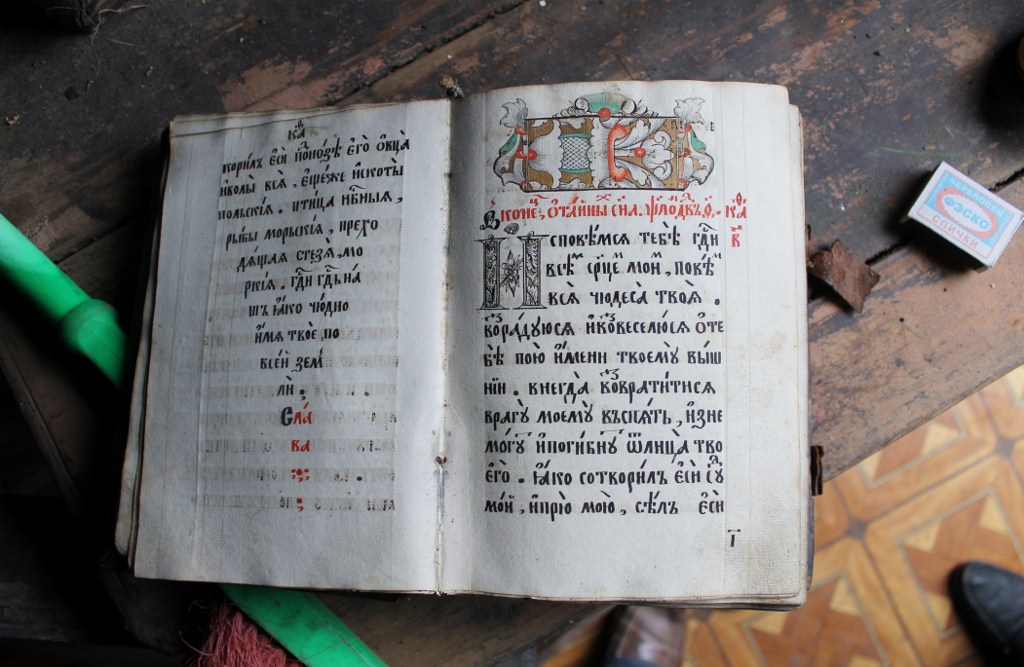 корилъ є҆сѝ под̾нозѣ є҆го̀ ѻ҆вца̀
иволы̀ всѧ̀ . є҆щеже и҆скоты̀
польскїѧ . птица нбⷭ҇ныѧ ,
рыбы морьскїѧ , прехо
дѧщаѧ стезѧ̀ , мо
рскїѧ . гдⷭ҇и гдⷭ҇ь на
шъ ꙗ҆́ко чю́дно
и҆́мѧ твоѐ по
всеи҆̀ земⸯ
лѝ :
Сла́
ва
в̾коне́цъ , ѡ҆та́инныхъ сн҃а . ѱало́мъ дв҃ду , ѳ҃ . ка
И҆споⷡ҇ѣмсѧ тебѣ̀ гдⷭ҇и
всѣⷨ срⷣцеⷨ моиⷨ , повѣⷨ
всѧ̀ чюдеса̀ твоѧ̀ .
возⷬ҇адуюсѧ и҆возвеселю́сѧ ѻ҆те
бѣ̀ пою̀ и҆́мени твоемꙋ̀ вы́ш
нїи . внегда̀ возвратитисѧ
врагꙋ̀ моемꙋ̀ въспѧ́ть , и҆зне
могꙋⷮ и҆погибнꙋⷮ ѿлица̀ тво
є҆го̀ . ꙗ҆́ко сотвори́лъ є҆сѝ сꙋⷣ
мо́й , и҆прю̀ мою̀ , сѣ́лъ є҆сѝ
ЧЕРЕПОВЕЦ
ФЭСКО
СПИЧКИ